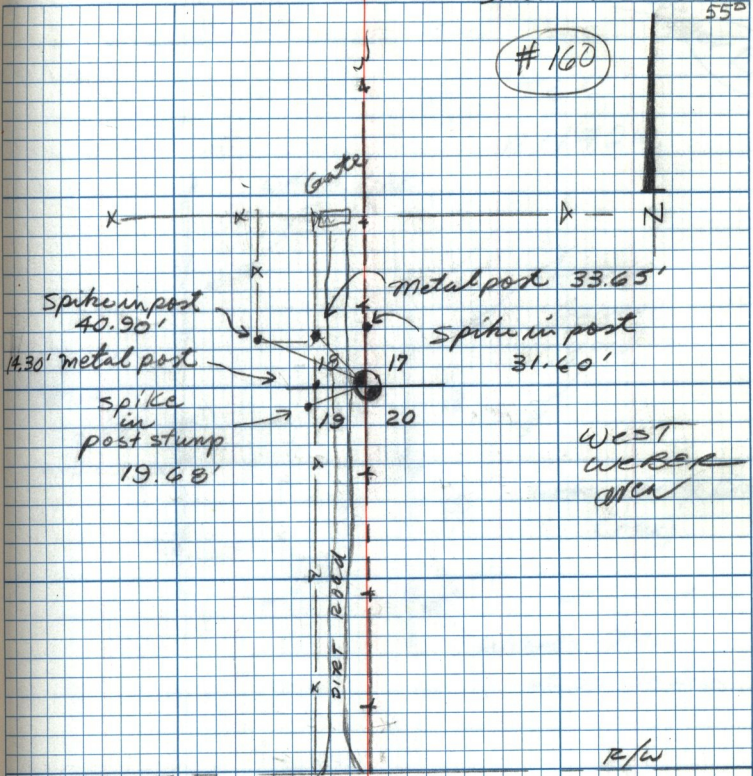 55°
#160
N
Gate
Metal post 33.65'
Spike in post
40.90'
spike in post
31.60'
14.30' metal post
18 17
19 20
spike
in
post stump
19.68'
WEST
WEBER
area
DIRT ROAD
R/W